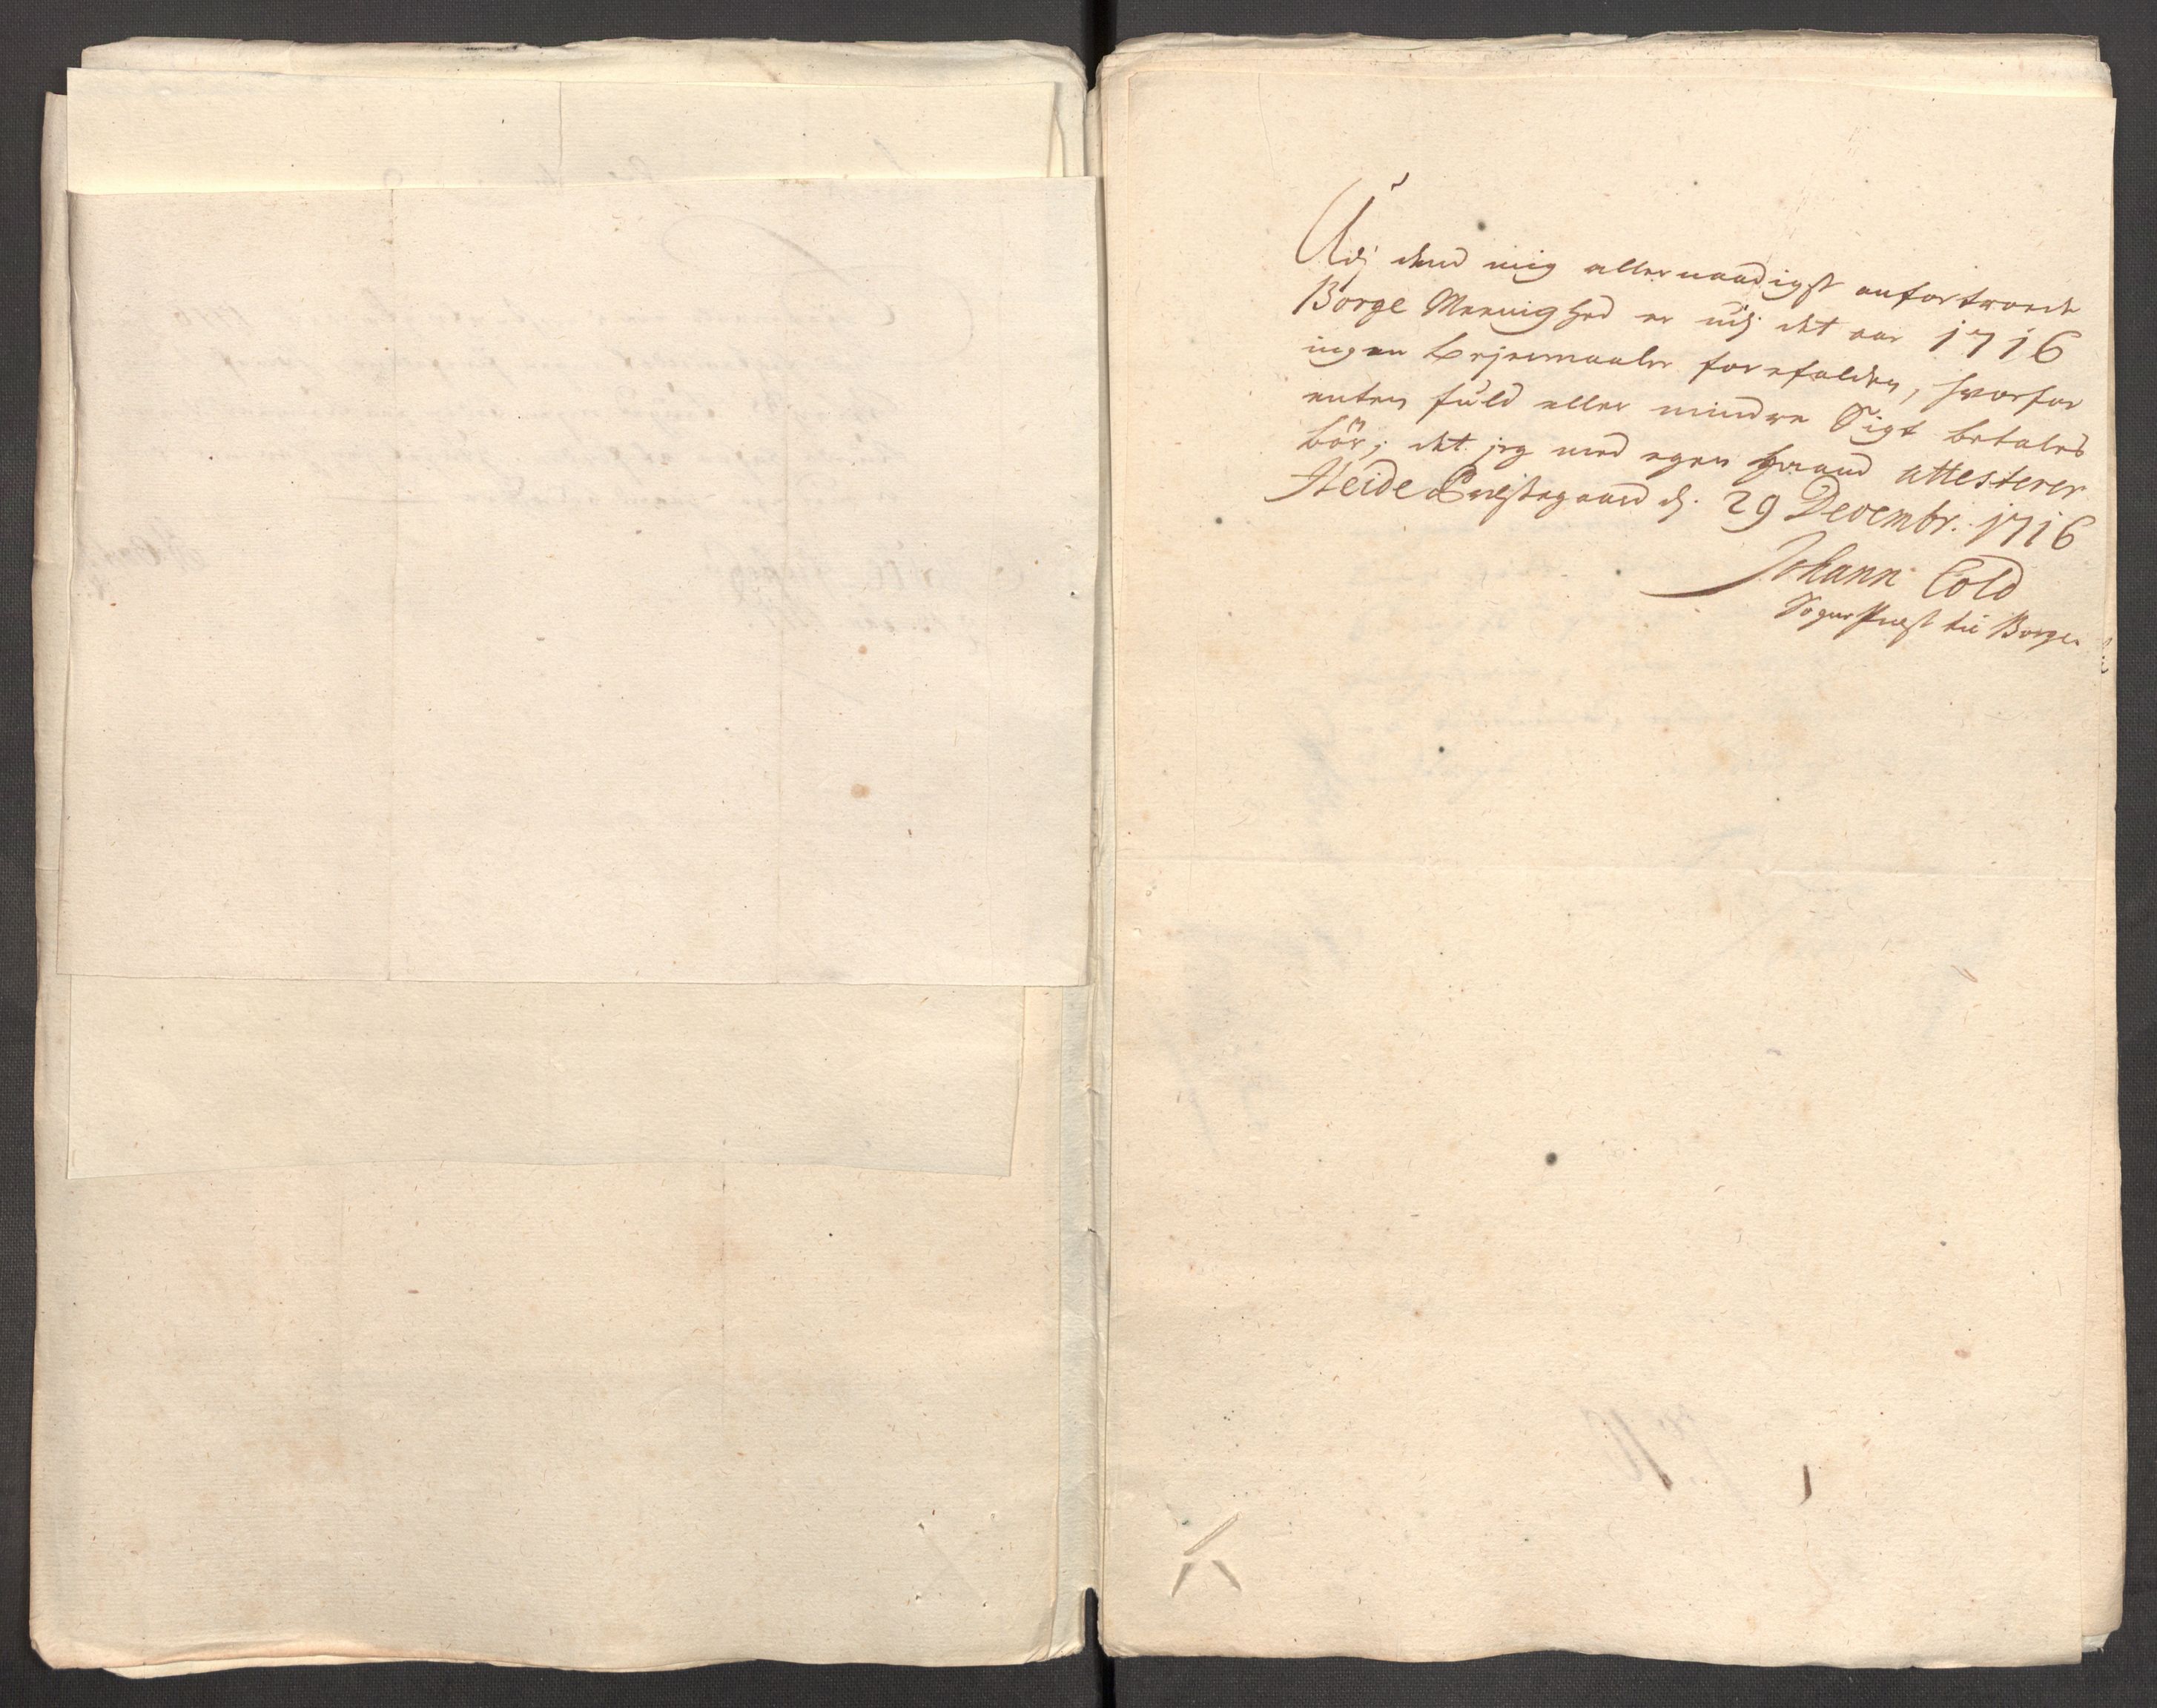 Udj dend mig allernaadigst anfortroede
Borge Meenighed er udj det aar 1716
ingen Lejermaaler forefalden, hvorfor
enten fuld eller mindre Sigt betales
bör; det jeg med egen haand attesterer
Heide Præstegaard d. 29 Decembr. 1716
Johann Cold
Sogne Præst til Borge